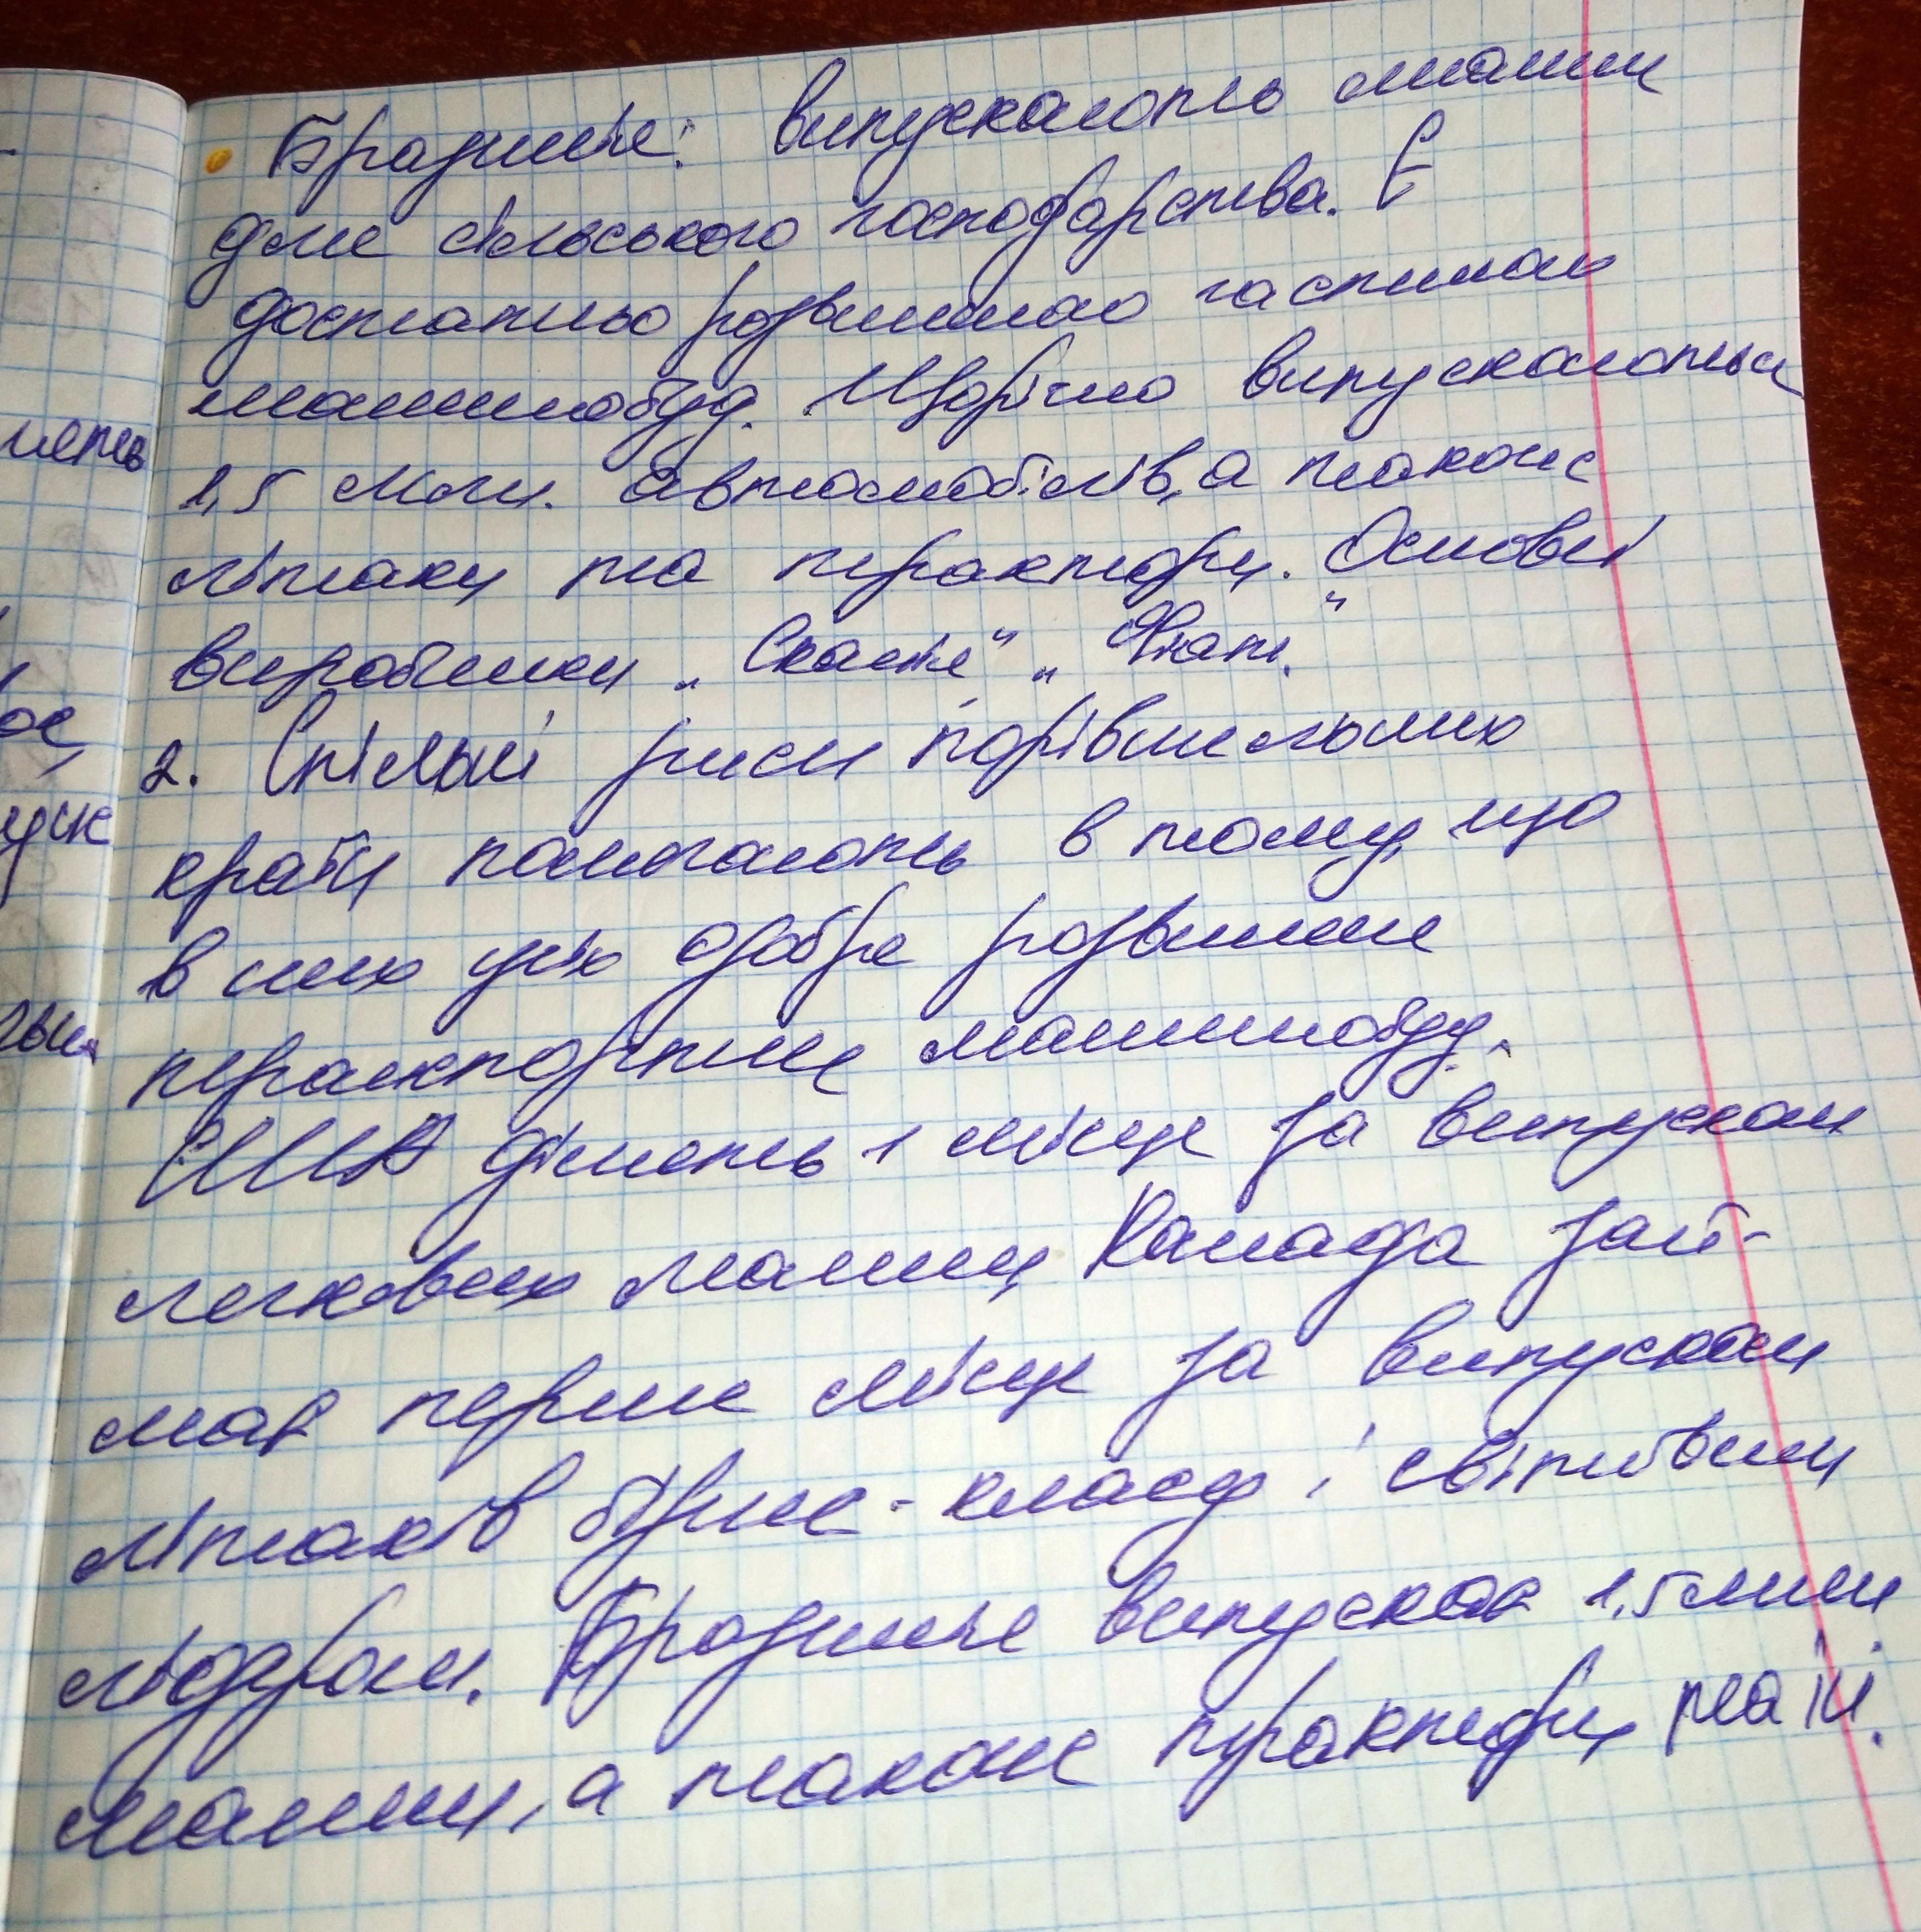 Бразилія: випускають машин
для сільського господарства. Є
достатньо розвинною частиною
машинобуд. Щорічно випускаються
1,5 млн. автомобілів, а також
літаки та трактори. Основні
виробники „Сканія" „Фіат."
2. Спільні риси порівняльних
країн полягають в тому, що
в них усіх добре розвинене
транспортне машинобуд.
США ділить 1 місце за випуском
легкових машин, Канада зай-
має перше місце за випуском
літаків бізнес-класу і світовим
лідером. Бразилія випускає 1,5 млн
машин, а також трактори та ін.
нють
ос,
уск